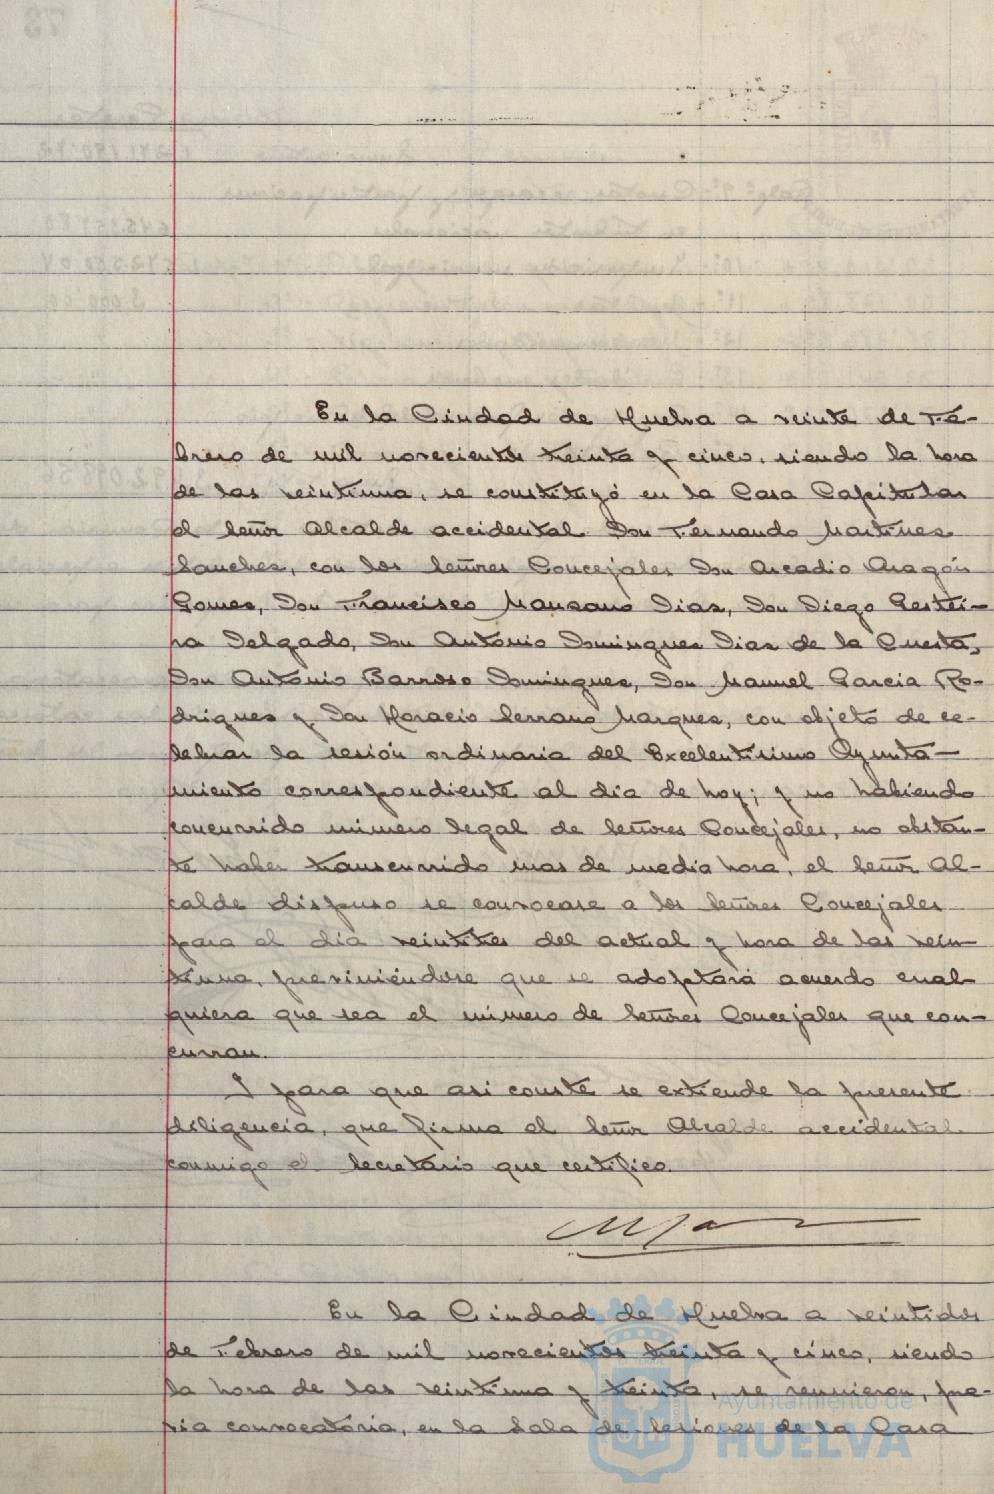 En la Ciudad de Huelva a veinte de Fe-
brero de mil novecientos treinta y cinco, siendo la hora
de las veintiuna, se constituyó en la Casa Capitular
el señor Alcalde accidental Don Fernando Martinez
Sanchez, con los señores Concejales Don Arcadio Aragón
Gomez, Don Francisco Manzano Diaz, Don Diego Gestei-
ra Delgado, Don Antonio Dominguez Diaz de la Cuesta,
Don Antonio Barroso Dominguez, Don Manuel Garcia Ro-
driguez y Don Horacio Serrano Marquez, con objeto de ce-
lebrar la sesión ordinaria del Excelentisimo Ayunta-
miento correspondiente al dia de hoy; y no habiendo
concurrido número legal de señores Concejales, no obstan-
te haber transcurrido mas de media hora, el señor Al-
calde dispuso se convocase a los señores Concejales
para el dia veintitres del actual y hora de las vein-
tiuna, previniéndose que se adoptará acuerdo cual-
quiera que sea el número de señores Concejales que con-
curran.
I para que asi conste se extiende la presente
diligencia, que firma el señor Alcalde accidental
conmigo el Secretario que certifico.
En la Ciudad de Huelva a veintidos
de Febrero de mil novecientos treinta y cinco, siendo
la hora de las veintiuna y treinta, se reunieron, pre-
via convocatoria, en la Sala de Sesiones de la Casa
Ayuntamiento de
HUELVA